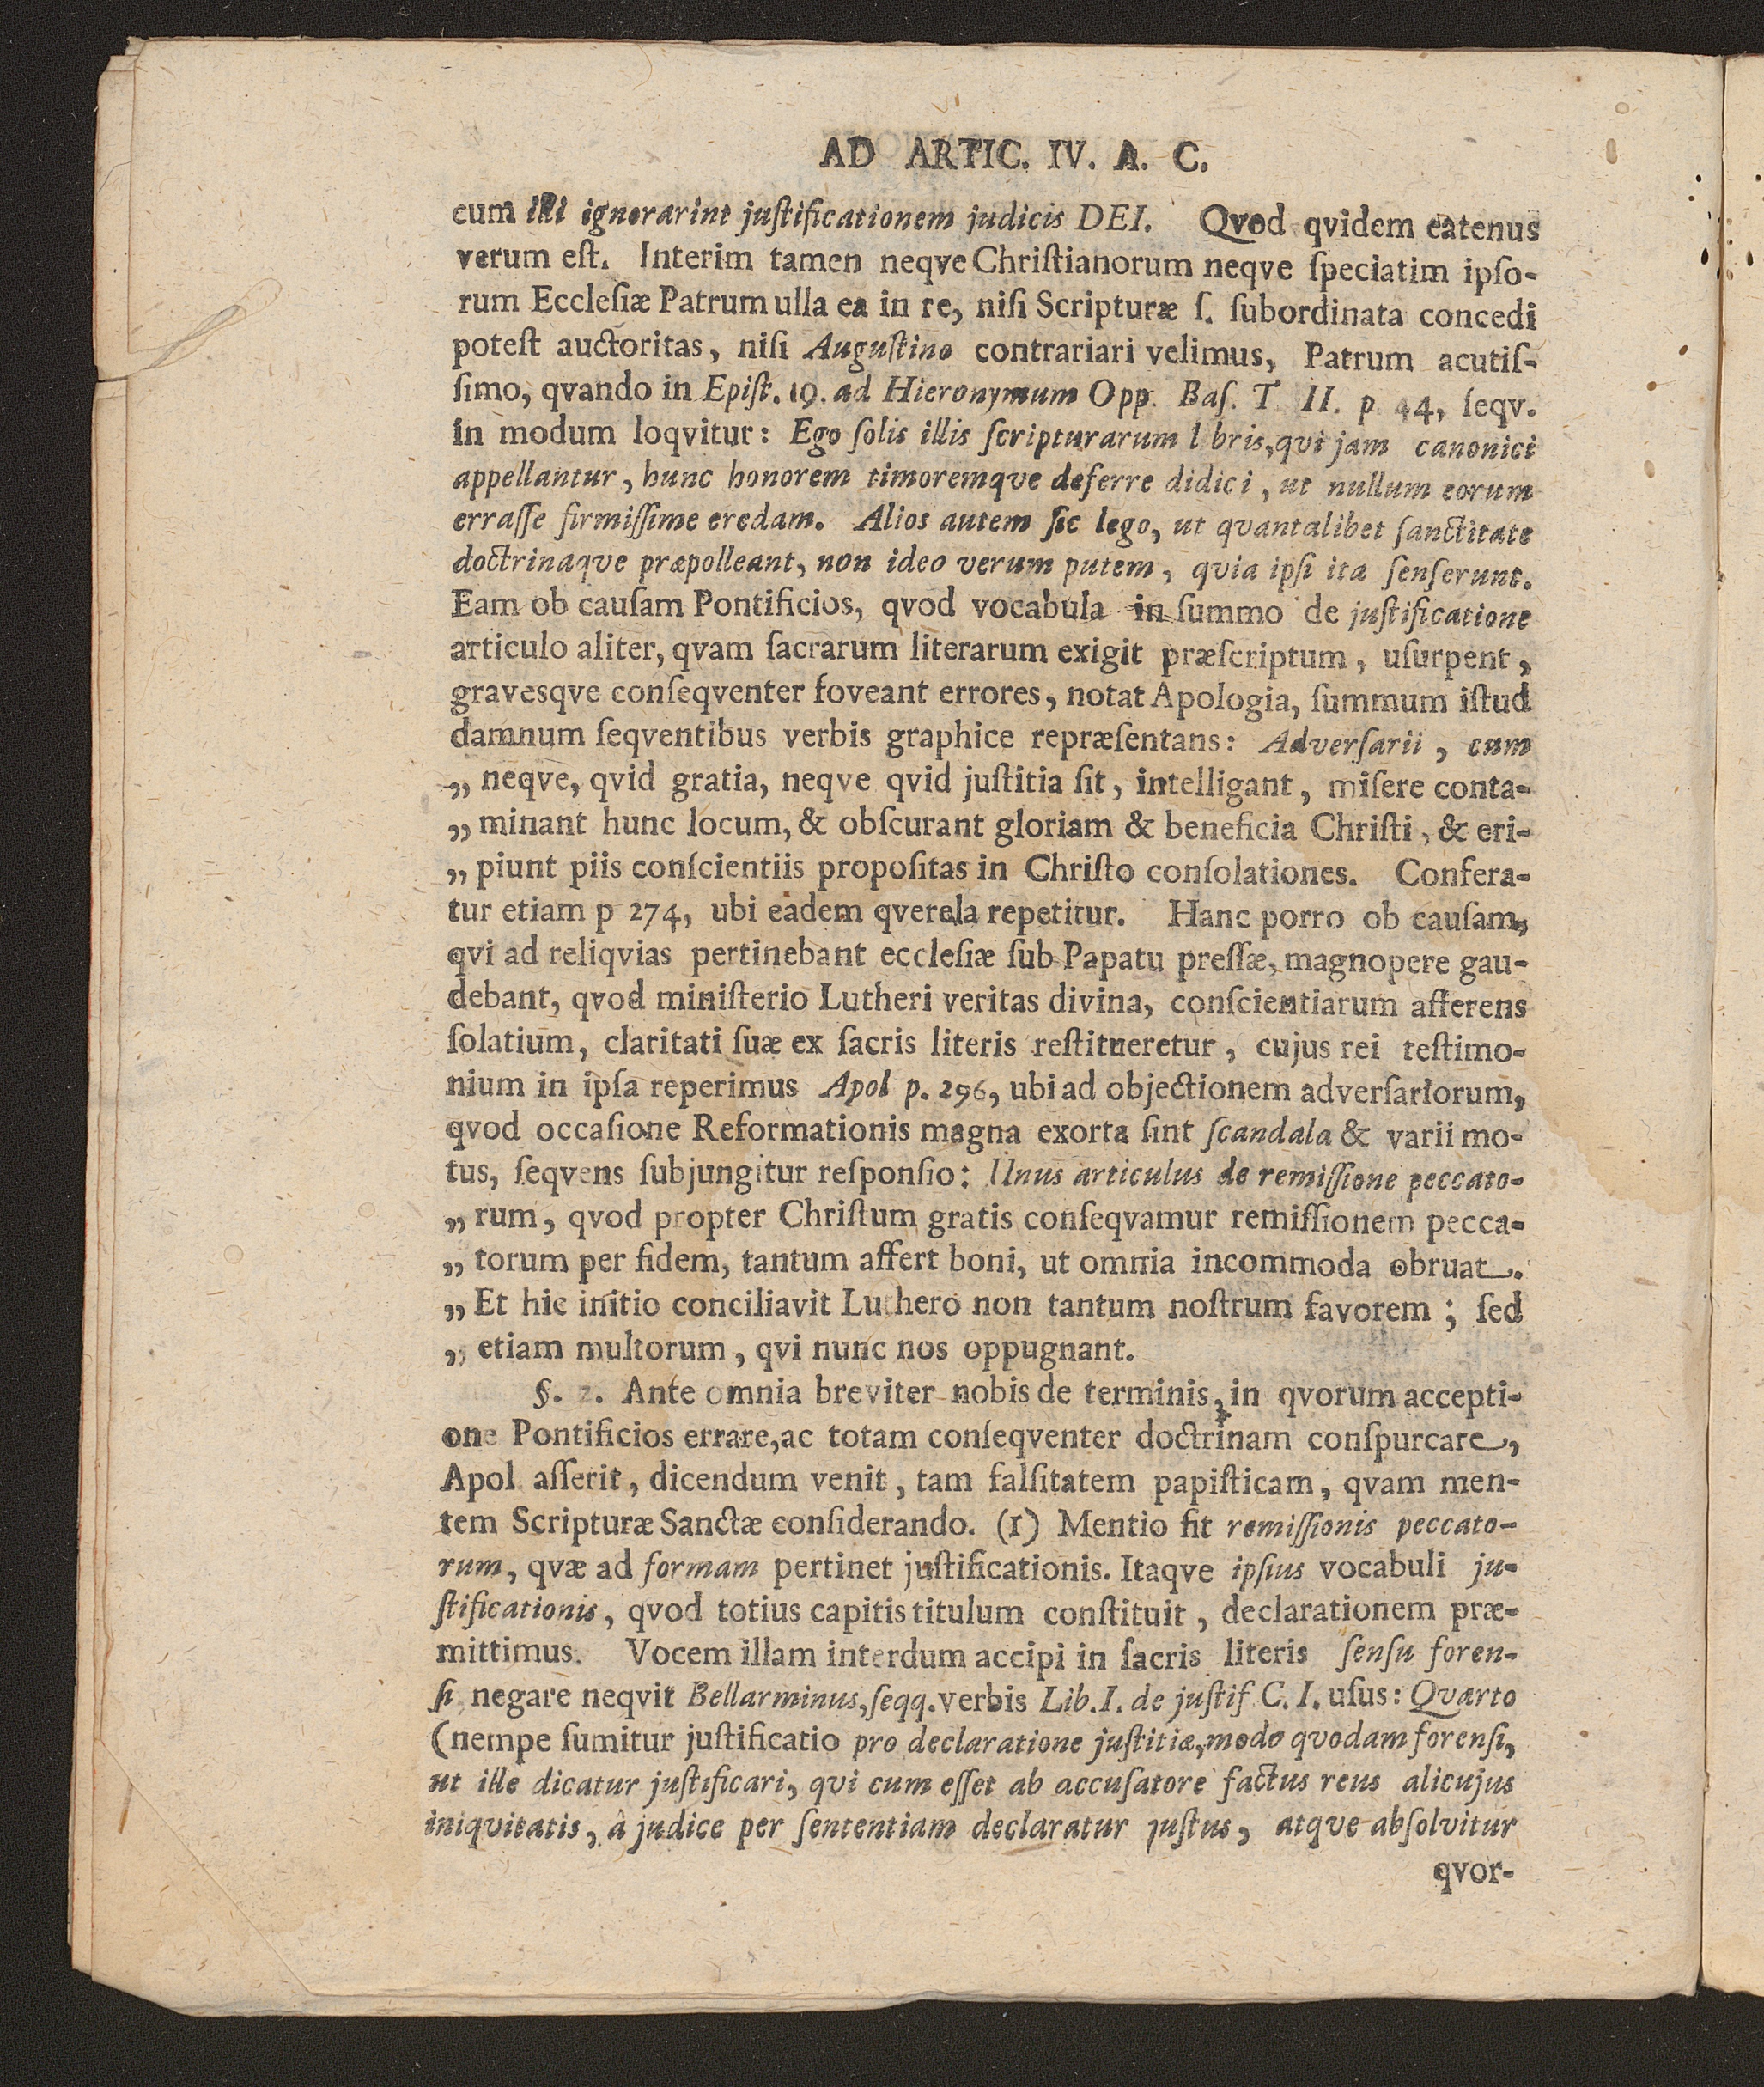 AD ARTIC. IV. A. C.
cum illi ignorarint juſtificationem judicis DEI. Qvod qvidem eatenus
verum eſt. Interim tamen neqve Chriſtianorum neqve ſpeciatim ipſo-
rum Eccleſiæ Patrum ulla ea in re, niſi Scripturæ ſ. ſubordinata concedi
poteſt auctoritas, niſi Auguſtino contrariari velimus, Patrum acutiſ-
ſimo, qvando in Epiſt. 19. ad Hieronymum Opp. Baſ. T II. p 44, ſeqv.
in modum loqvitur: Ego ſolis illis ſcripturarum l bris, qvi jam canonici
appellantur, hunc honorem timoremqve deferre didici, ut nullum eorum
erraſſe firmiſſime eredam. Alios autem ſic lego, ut qvantalibet ſanctitate
doctrinaqve præpolleant, non ideo verum putem, qvia ipſi ita ſenſerunt.
Eam ob cauſam Pontificios, qvod vocabula in ſummo de juſtificatione
articulo aliter, qvam ſacrarum literarum exigit præſcriptum, uſurpent,
gravesqve conſeqventer foveant errores, notat Apologia, ſummum iſtud
damnum ſeqventibus verbis graphice repræſentans: Adverſarii, cum
„ neqve, qvid gratia, neqve qvid juſtitia ſit, intelligant, miſere conta-
„ minant hunc locum, & obſcurant gloriam & beneficia Chriſti, & eri-
„ piunt piis conſcientiis propoſitas in Chriſto conſolationes. Confera-
tur etiam p 274, ubi eadem qverela repetitur. Hanc porro ob cauſam,
qvi ad reliqvias pertinebant eccleſiæ ſub Papatu preſſæ, magnopere gau-
debant, qvod miniſterio Lutheri veritas divina, conſcientiarum afferens
ſolatium, claritati ſuæ ex ſacris literis reſtitueretur, cujus rei teſtimo-
nium in ipſa reperimus Apol p. 296, ubi ad objectionem adverſariorum,
qvod occaſione Reformationis magna exorta ſint ſcandala & varii mo-
tus, ſeqvens ſubjungitur reſponſio: Unus articulus de remiſſione peccato-
„ rum, qvod propter Chriſtum gratis conſeqvamur remiſſionem pecca-
„ torum per fidem, tantum affert boni, ut omnia incommoda obruat.
„ Et hic initio conciliavit Luthero non tantum noſtrum favorem; ſed
„ etiam multorum, qvi nunc nos oppugnant.
§. 2. Ante omnia breviter nobis de terminis, in qvorum accepti-
one Pontificios errare, ac totam conſeqventer doctrinam conſpurcare,
Apol aſſerit, dicendum venit, tam falſitatem papiſticam, qvam men-
tem Scripturæ Sanctæ conſiderando. (1) Mentio fit remiſſionis peccato-
rum, qvæ ad formam pertinet juſtificationis. Itaqve ipſius vocabuli ju-
ſtificationis, qvod totius capitis titulum conſtituit, declarationem præ-
mittimus. Vocem illam interdum accipi in ſacris literis ſenſu foren-
ſi negare neqvit Bellarminus, ſeqq. verbis Lib. I. de juſtif C. I. uſus: Qvarto
(nempe ſumitur juſtificatio pro declaratione juſtitiæ, modo qvodam forenſi,
ut ille dicatur juſtificari, qvi cum eſſet ab accuſatore factus reus alicujus
iniqvitatis, à judice per ſententiam declaratur juſtus, atqve abſolvitur
qvor-